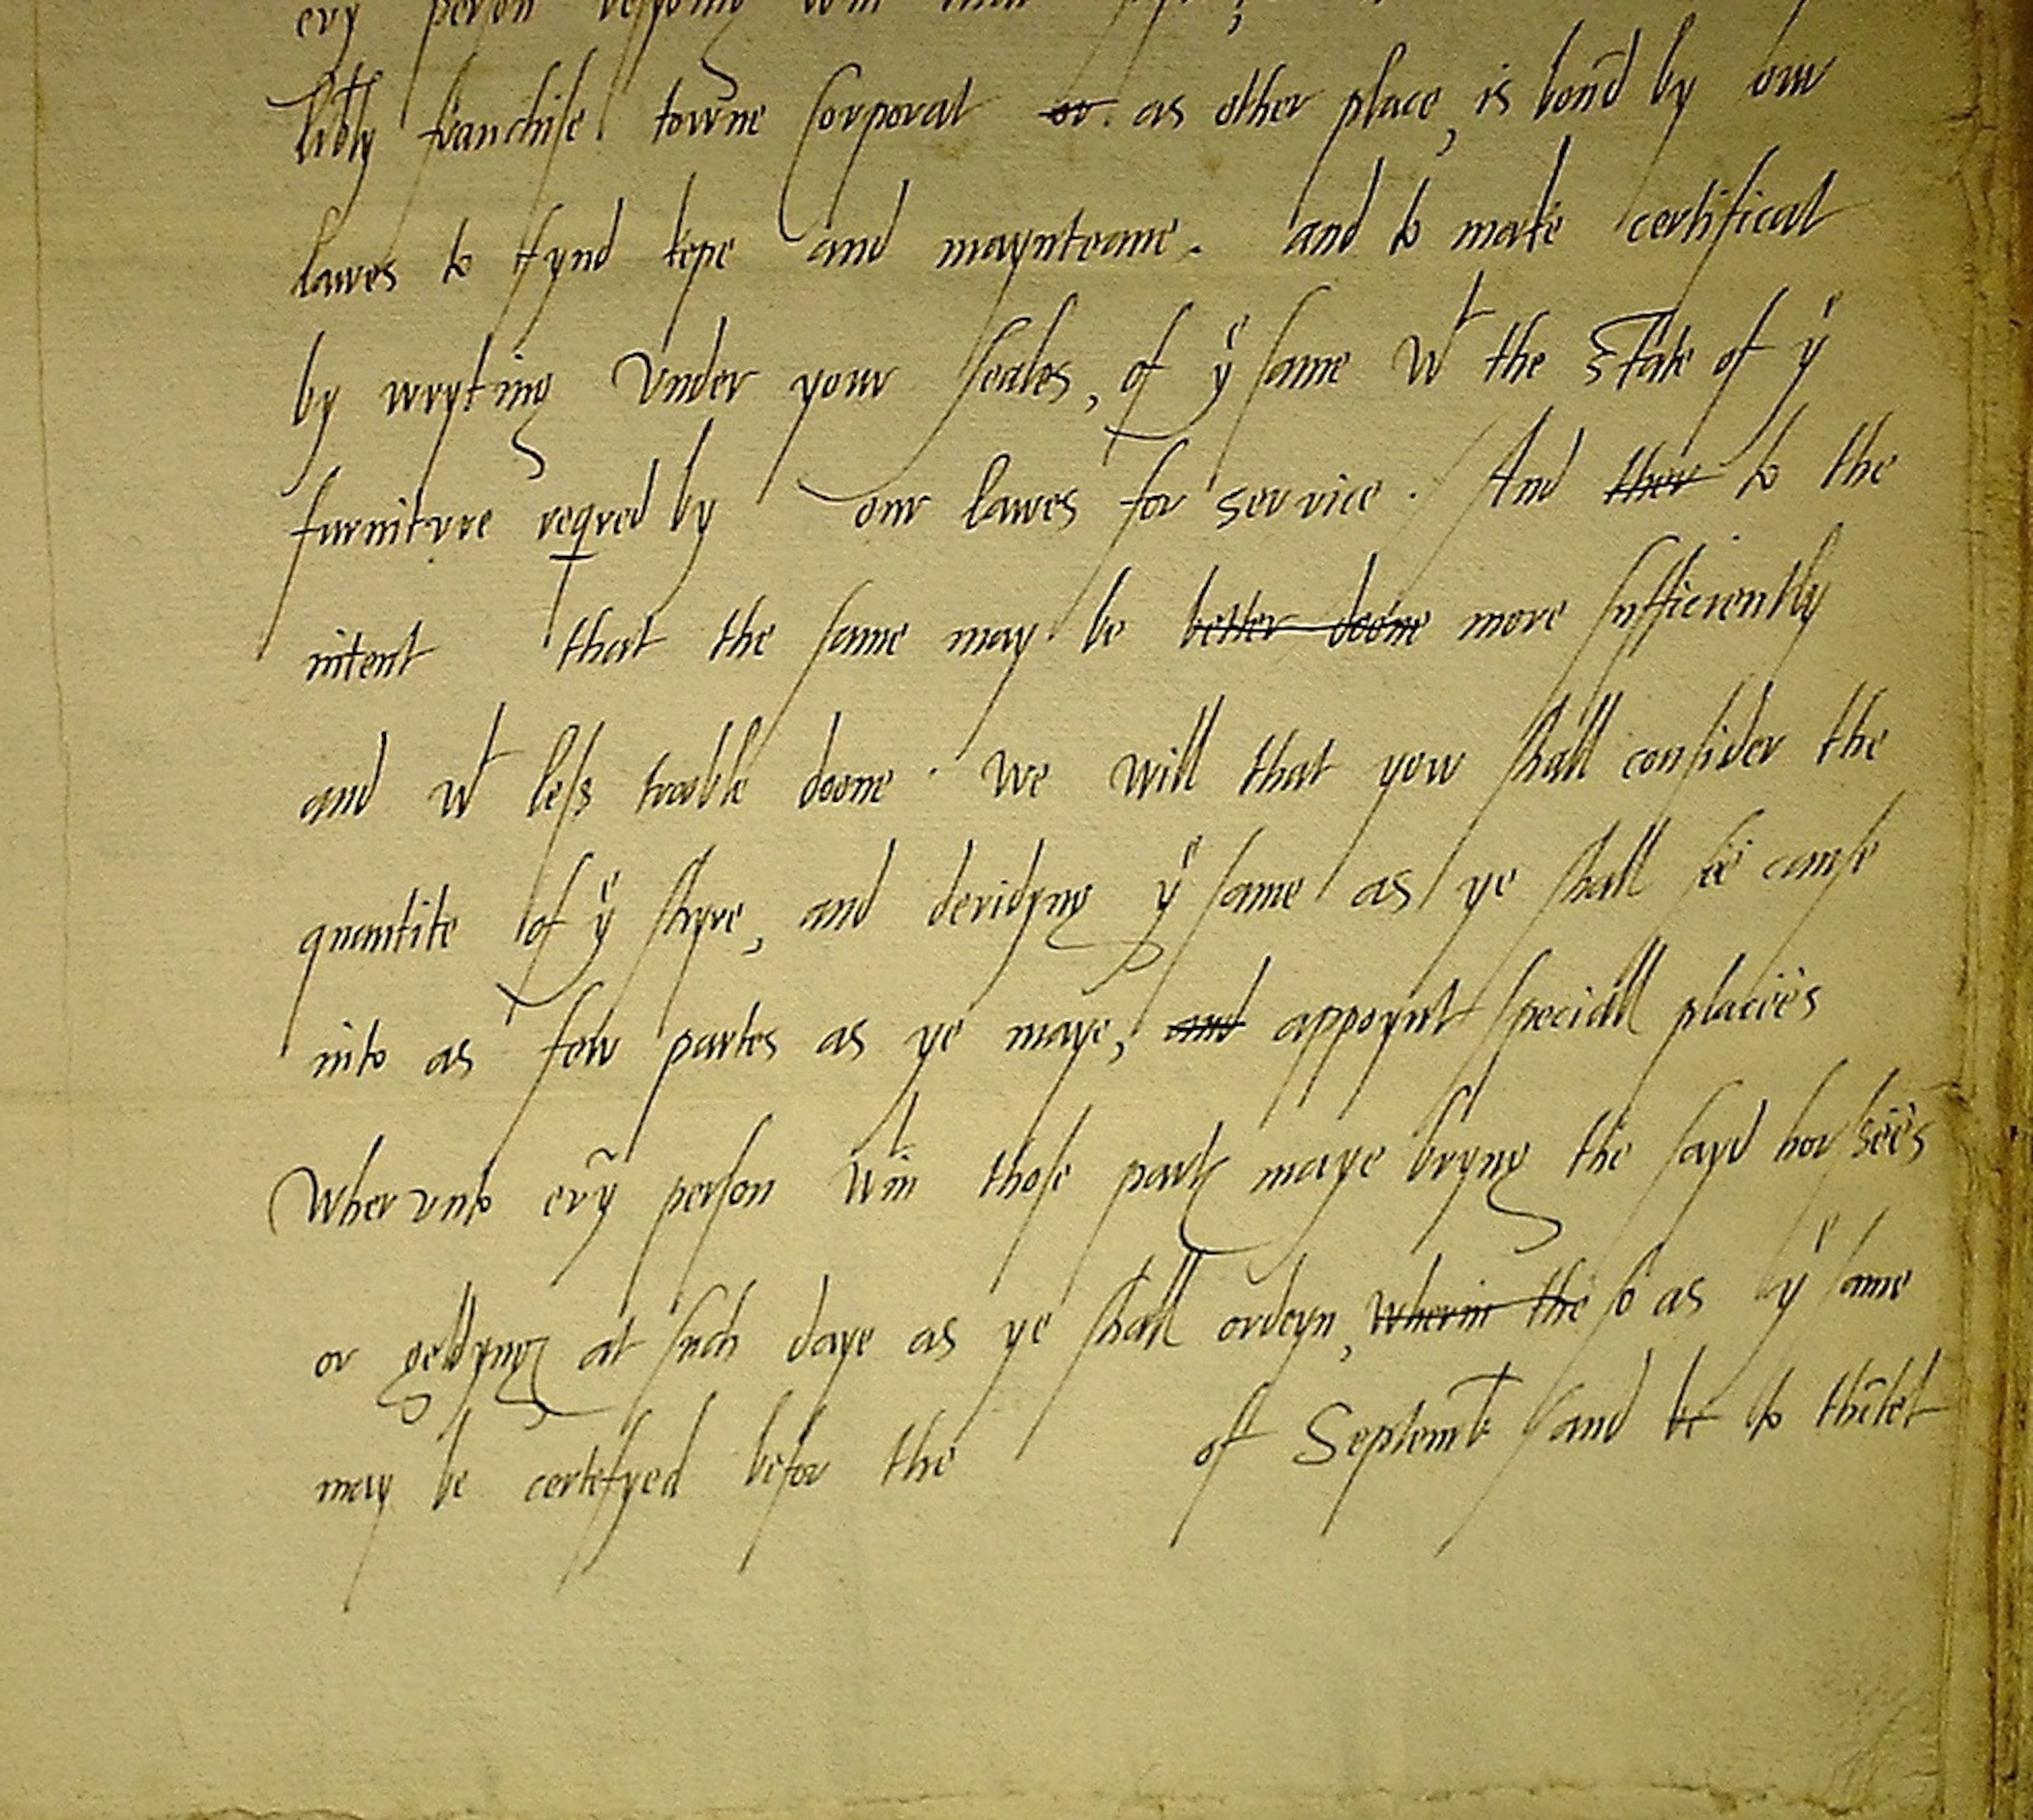 evy person
libty franchise towne corporat or as other place, is bond by our
lawes to fynd kepe and maynteane. and to make certificat
by wryting Vnder your seales, of yͤ same wᵗ the State of yͤ
furniture reqred by our lawes for service. And ther to the
intent that the same may be better doone more sufficiently
and wᵗ less troble doone. We will that yow shall consider the
quantite of yͤ shyre, and devidyng yͤ same as ye shall see cause
into as few partes as ye maye, and appoynt speciall placees
Wher vnto evy person wᵗin those partꝭ maye bryng the sayd horsees
or geldyngꝭ at such daye as ye shall ordeyn, Wherin the so as yͤ same
may be certefyed befor the of Septemb and be to thētēt